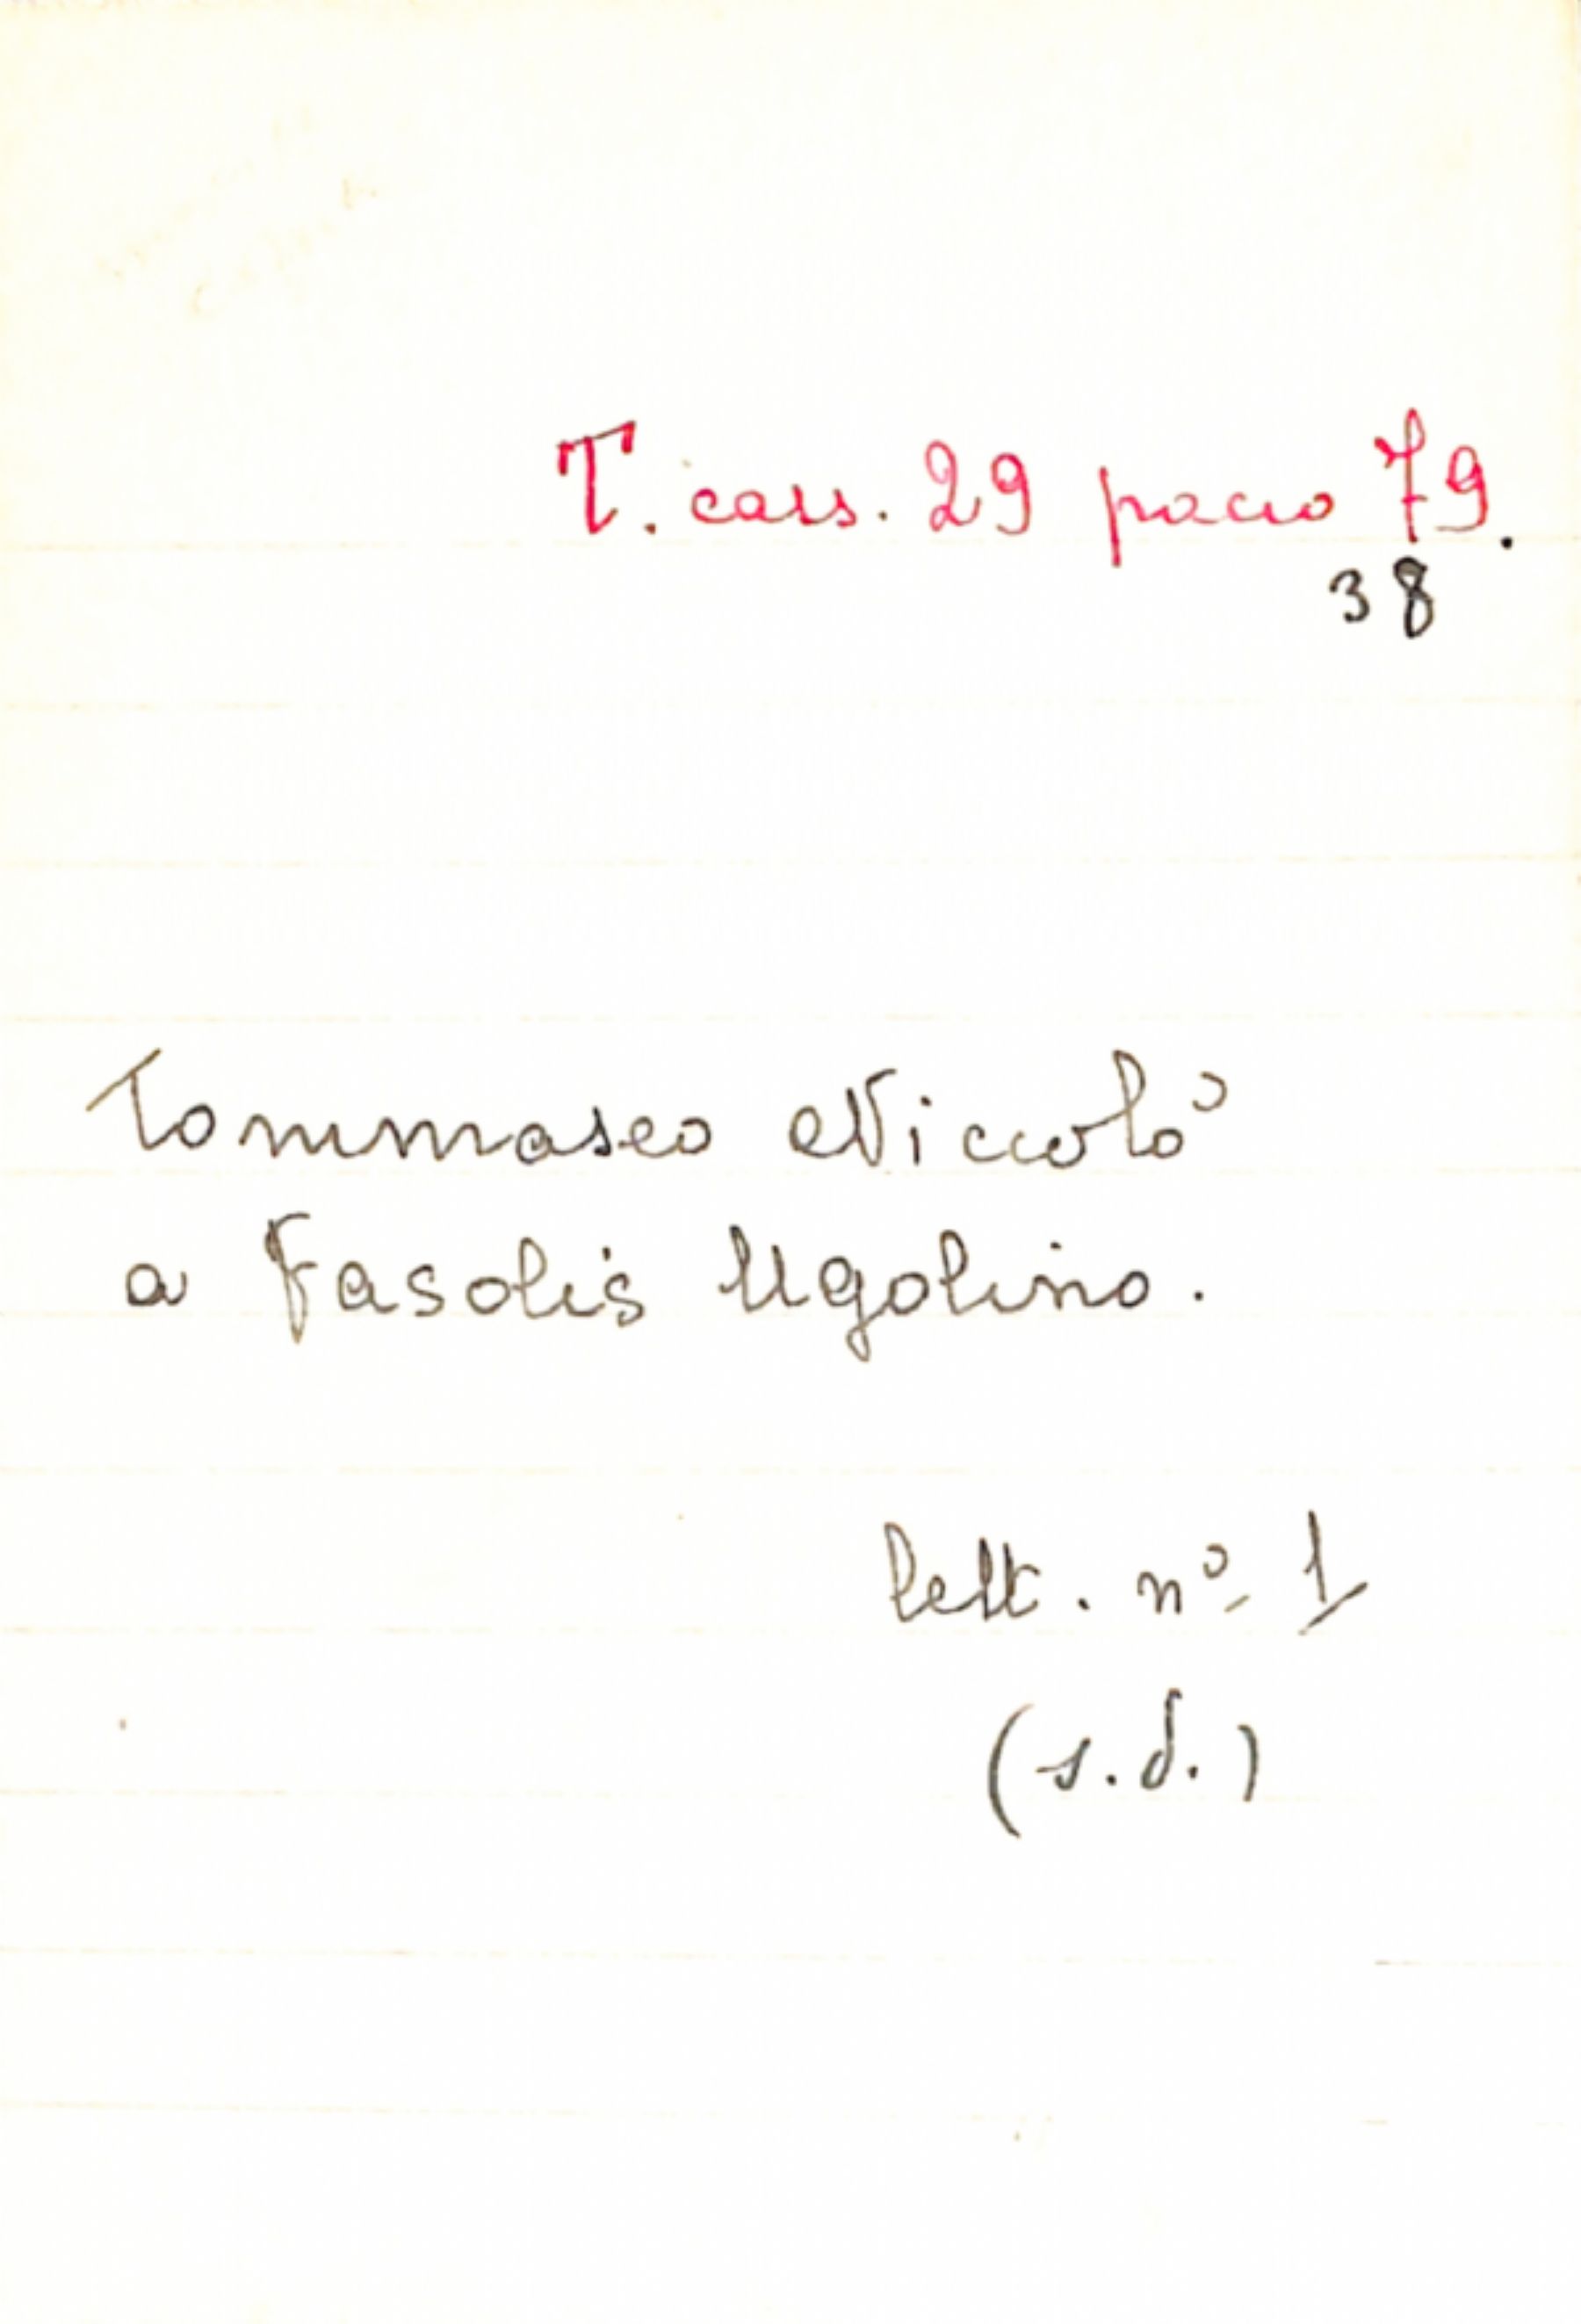 T. cass. 29 pacco 79.
38
Tommaseo Niccolò
a Fasolis Ugolino.
lett. nº 1
(s.d.)